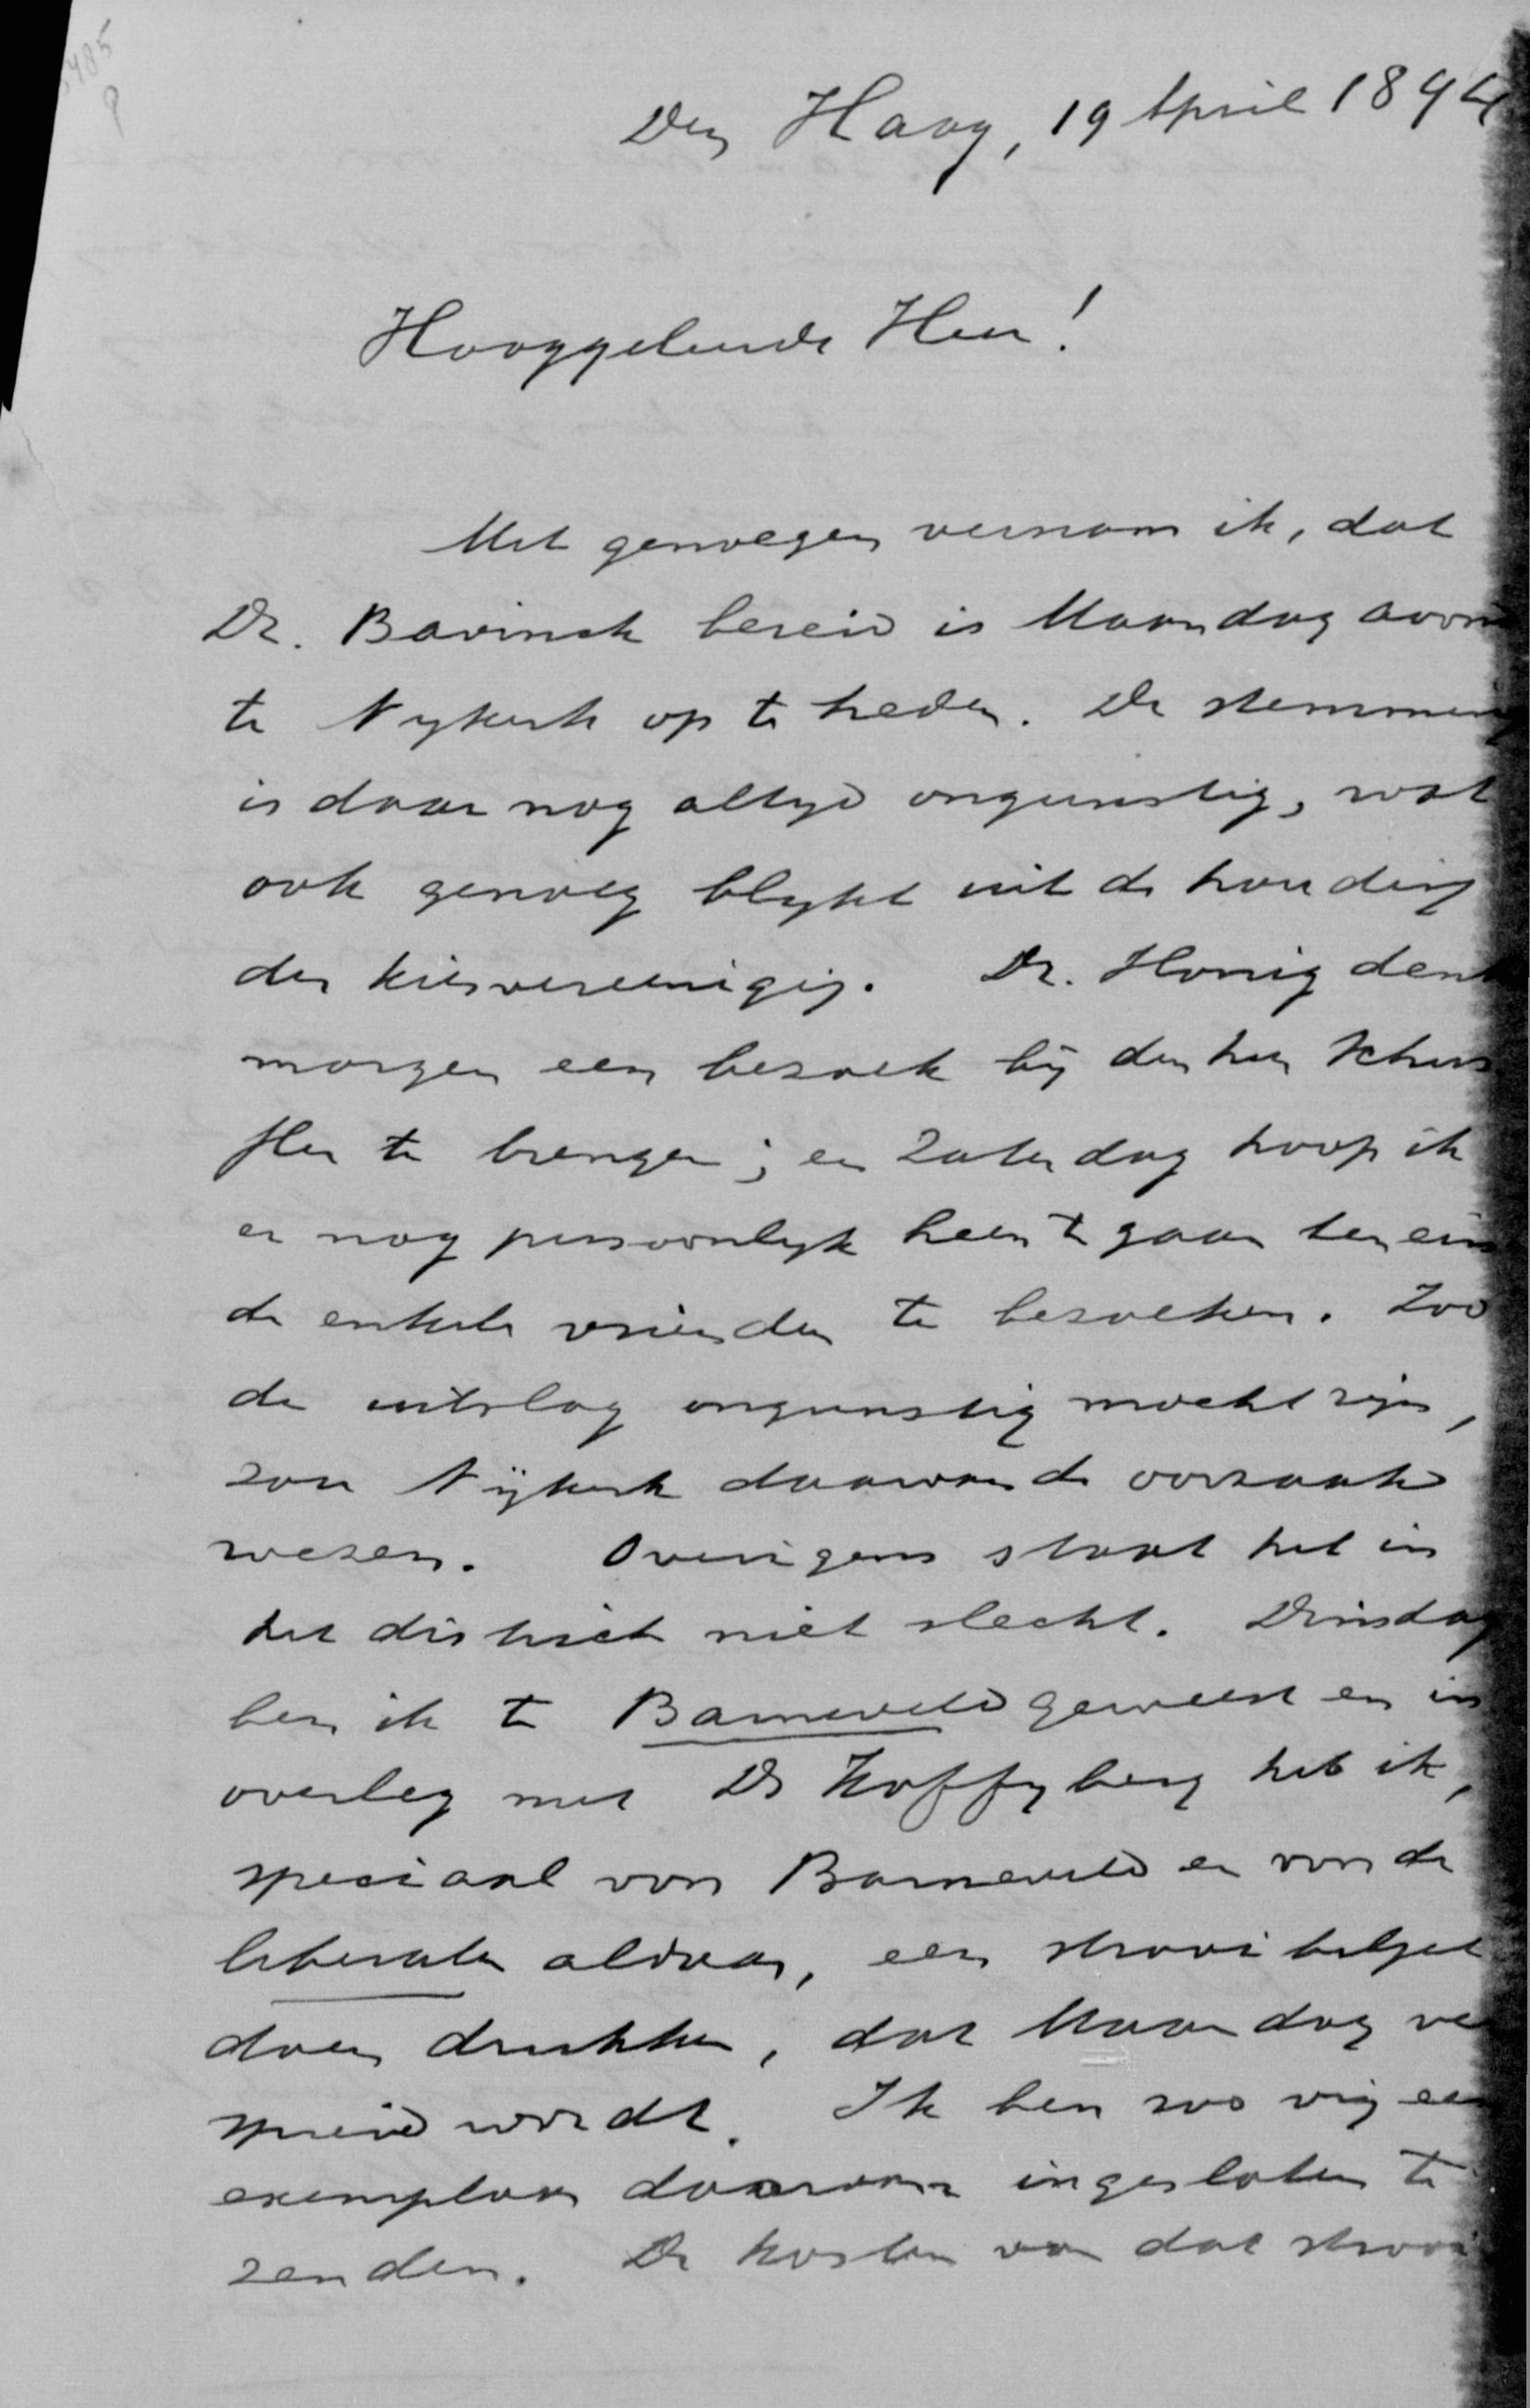 Den Haag, 19 April 1894
Hooggeleerde Heer!
Met genoegen vernam ik, dat
Dr. Bavinck bereid is Maandag avond
te Nykerk op te treden. De stemming
is daar nog altyd ongunstig, wat
ook genoeg blykt uit de houding
der kiesvereeniging. Dr. Honig denkt
morgen een bezoek bij den heer
te brengen; en Zaterdag hoop ik
er nog persoonlyk heen te gaan ten ein
de enkele vrienden te bezoeken. Zoo
de uitslag ongunstig mocht zijn,
zou Nijkerk daarvan de oorzaak
wezen. Overigens staat het in
het district niet slecht. Dinsdag
ben ik te Barneveld geweest en in
overleg met Ds Koffyberg heb ik,
speciaal voor Barneveld en voor de
liberalen aldaar, een strooibiljet
doen drukken, dat Maandag ver
spreid wordt. Ik ben zoo vrij een
exemplaar daarvan ingesloten te
zenden. De kosten van dat strooi